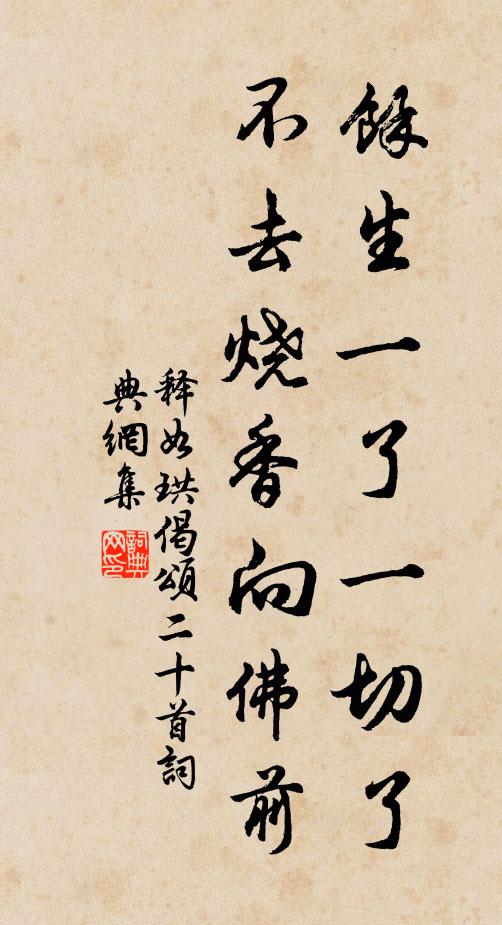 餘生一了一切了
不去烧香向佛前
释如珙偈頌二十首詞
典網集
詞典
网印